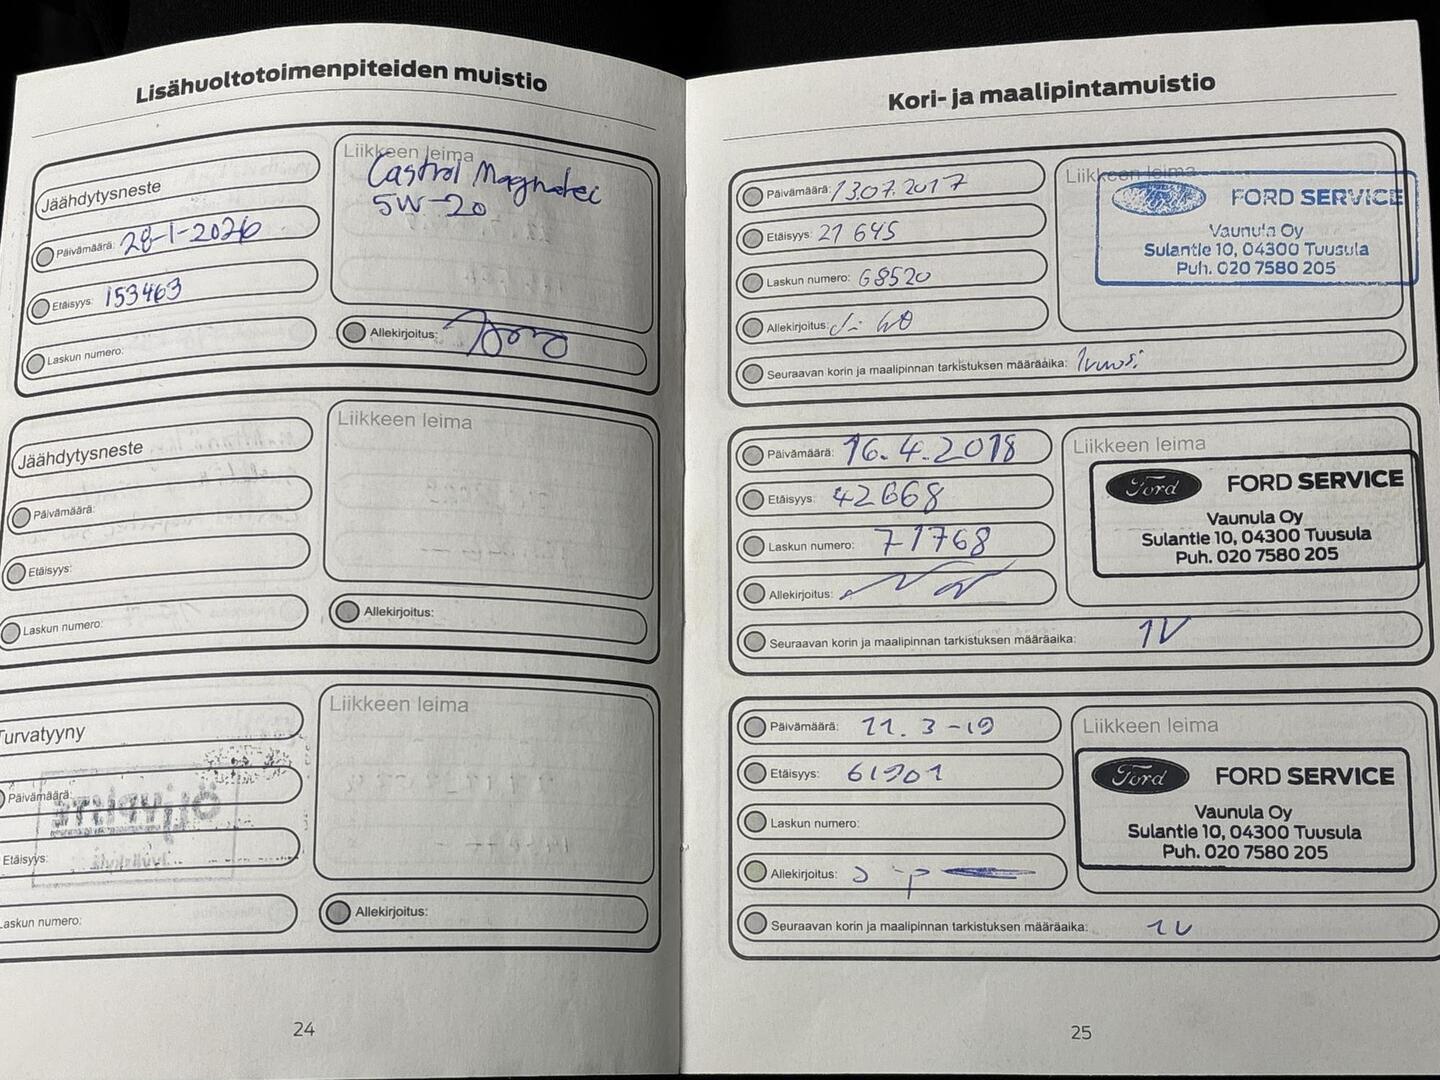 Lisähuoltotoimenpiteiden muistio
Jäähdytysneste
Päivämäärä: 28-1-2026
Etäisyys: 153463
Laskun numero:
Liikkeen leima
Castrol Magnatec
5W-20
Allekirjoitus:
Jäähdytysneste
Päivämäärä:
Etäisyys:
Laskun numero:
Liikkeen leima
Allekirjoitus:
Turvatyyny
Päivämäärä:
Etäisyys:
Laskun numero:
Liikkeen leima
Allekirjoitus:
24
Kori- ja maalipintamuistio
Päivämäärä: 13.07.2017
Etäisyys: 21 645
Laskun numero: 68520
Allekirjoitus:
Seuraavan korin ja maalipinnan tarkistuksen määräaika: 1vuosi
Liikkeen leima
FORD SERVICE
Vaunula Oy
Sulantie 10, 04300 Tuusula
Puh. 020 7580 205
Päivämäärä: 16.4.2018
Etäisyys: 42668
Laskun numero: 71768
Allekirjoitus:
Seuraavan korin ja maalipinnan tarkistuksen määräaika: 1V
Liikkeen leima
Ford FORD SERVICE
Vaunula Oy
Sulantie 10, 04300 Tuusula
Puh. 020 7580 205
Päivämäärä: 11.3-19
Etäisyys: 61901
Laskun numero:
Allekirjoitus:
Seuraavan korin ja maalipinnan tarkistuksen määräaika: 1V
Liikkeen leima
Ford FORD SERVICE
Vaunula Oy
Sulantie 10, 04300 Tuusula
Puh. 020 7580 205
25